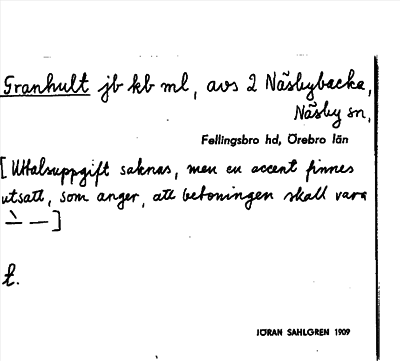 Granhult jb kb ml, avs 2 Näsbybacka,
Näsby sn,
Fellingsbro hd, Örebro län
[Uttalsuppgift saknas, men en accent finnes
utsatt, som anger, att betoningen skall vara
`— —]
t.
JÖRAN SAHLGREN 1909